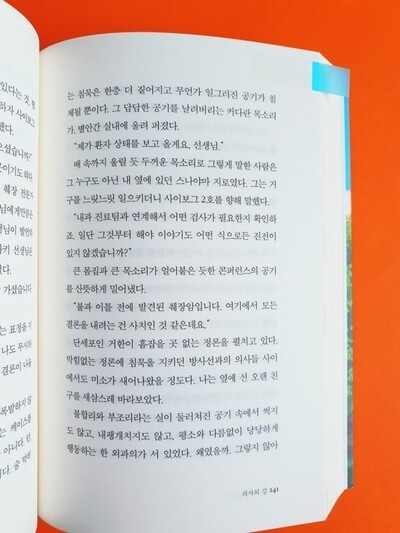 있다는 것,
하자 사이보그
했다.
으셨습니까?"
분이기도 하
췌장 전문가
님에게만큼은
님이 발언하
나키 선생님은
까?"
가셨습니다
는 표정을 지
나도 무시하
결론이 나올
폭발하지 않
는 케이스를
아니다. 만,
니다. 술 먹
는 침묵은 한층 더 짙어지고 무언가 일그러진 공기가 침
체될 뿐이다. 그 답답한 공기를 날려버리는 커다란 목소리
가, 별안간 실내에 울려 퍼졌다.
"제가 환자 상태를 보고 올게요, 선생님."
배 속까지 울릴 듯 두꺼운 목소리로 그렇게 말한 사람은
그 누구도 아닌 내 옆에 있던 스나야마 지로였다. 그는 거
구를 느릿느릿 일으키더니 사이보그 2호를 향해 말했다.
"내과 진료팀과 연계해서 어떤 검사가 필요한지 확인하
죠. 일단 그것부터 해야 이야기도 어떤 식으로든 진전이
있지 않겠습니까?"
큰 몸집과 큰 목소리가 얼어붙은 듯한 콘퍼런스의 공기
를 산뜻하게 밀어냈다.
"불과 이틀 전에 발견된 췌장암입니다. 여기에서 모든
결론을 내리는 건 사치인 것 같은데요."
단세포인 거한이 흠잡을 곳 없는 정론을 펼치고 있다.
막힘없는 정론에 침묵을 지키던 방사선과의 의사들 사이
에서도 미소가 새어나왔을 정도다. 나는 옆에 선 오랜 친
구를 새삼스레 바라보았다.
불합리와 부조리라는 실이 둘러쳐진 공기 속에서 썩지
도 않고, 내팽개치지도 않고, 평소와 다름없이 당당하게
행동하는 한 외과의가 서 있었다. 왜였을까. 그렇지 않아
의사의 길 241